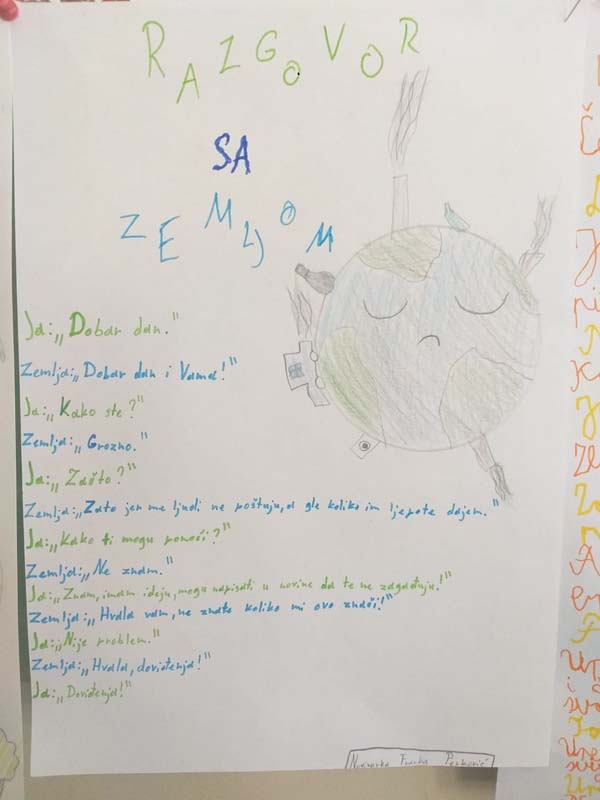 RAZGOVOR
SA
ZEMLJOM
Ja:„Dobar dan."
Zemlja:„Dobar dan i Vama!"
Ja:„Kako ste?"
Zemlja:„Grozno."
Ja:„Zašto?"
Zemlja:„Zato jer me ljudi ne poštuju,a gle koliko im ljepote dajem."
Ja:„Kako ti mogu pomoći?"
Zemlja:„Ne znam."
Ja:„Znam,imam ideju,mogu napisati u novine da te ne zagađuju!"
Zemlja:„Hvala vam,ne znate koliko mi ovo znači!"
Ja:„Nije problem."
Zemlja:„Hvala,doviđenja!"
Ja:„Doviđenja!"